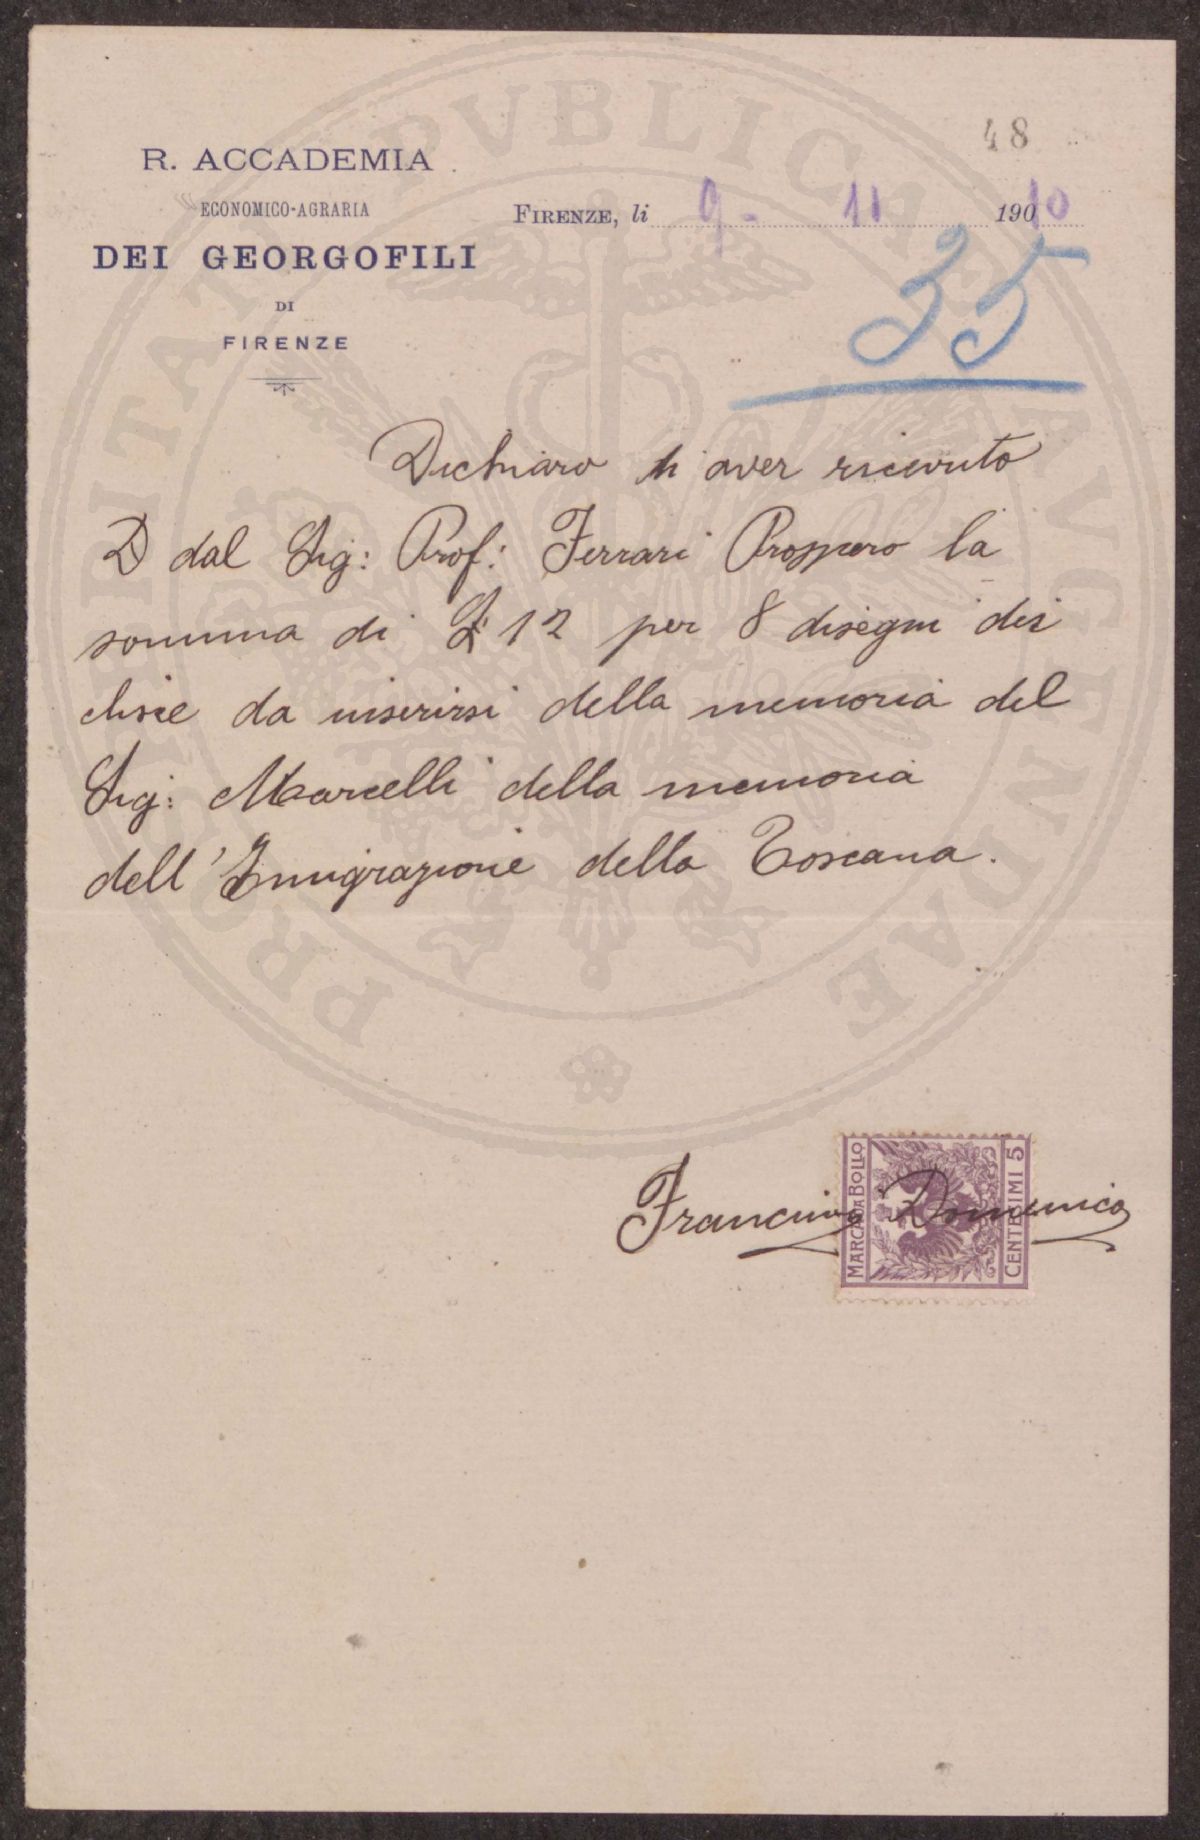 48
R. ACCADEMIA
ECONOMICO-AGRARIA
DEI GEORGOFILI
DI
FIRENZE
FIRENZE, li 9 - 11 1910
35
Dichiaro di aver ricevuto
D dal Sig: Prof: Ferrari Prospero la
somma di £ 12 per 8 disegni dei
clisce da inserirsi della memoria del
Sig: Marcelli della memoria
dell'Immigrazione della Toscana.
Francini Domenico
MARCA DA BOLLO
CENTESIMI 5
PROSPERITATI PVBLICAE AVGENDAE